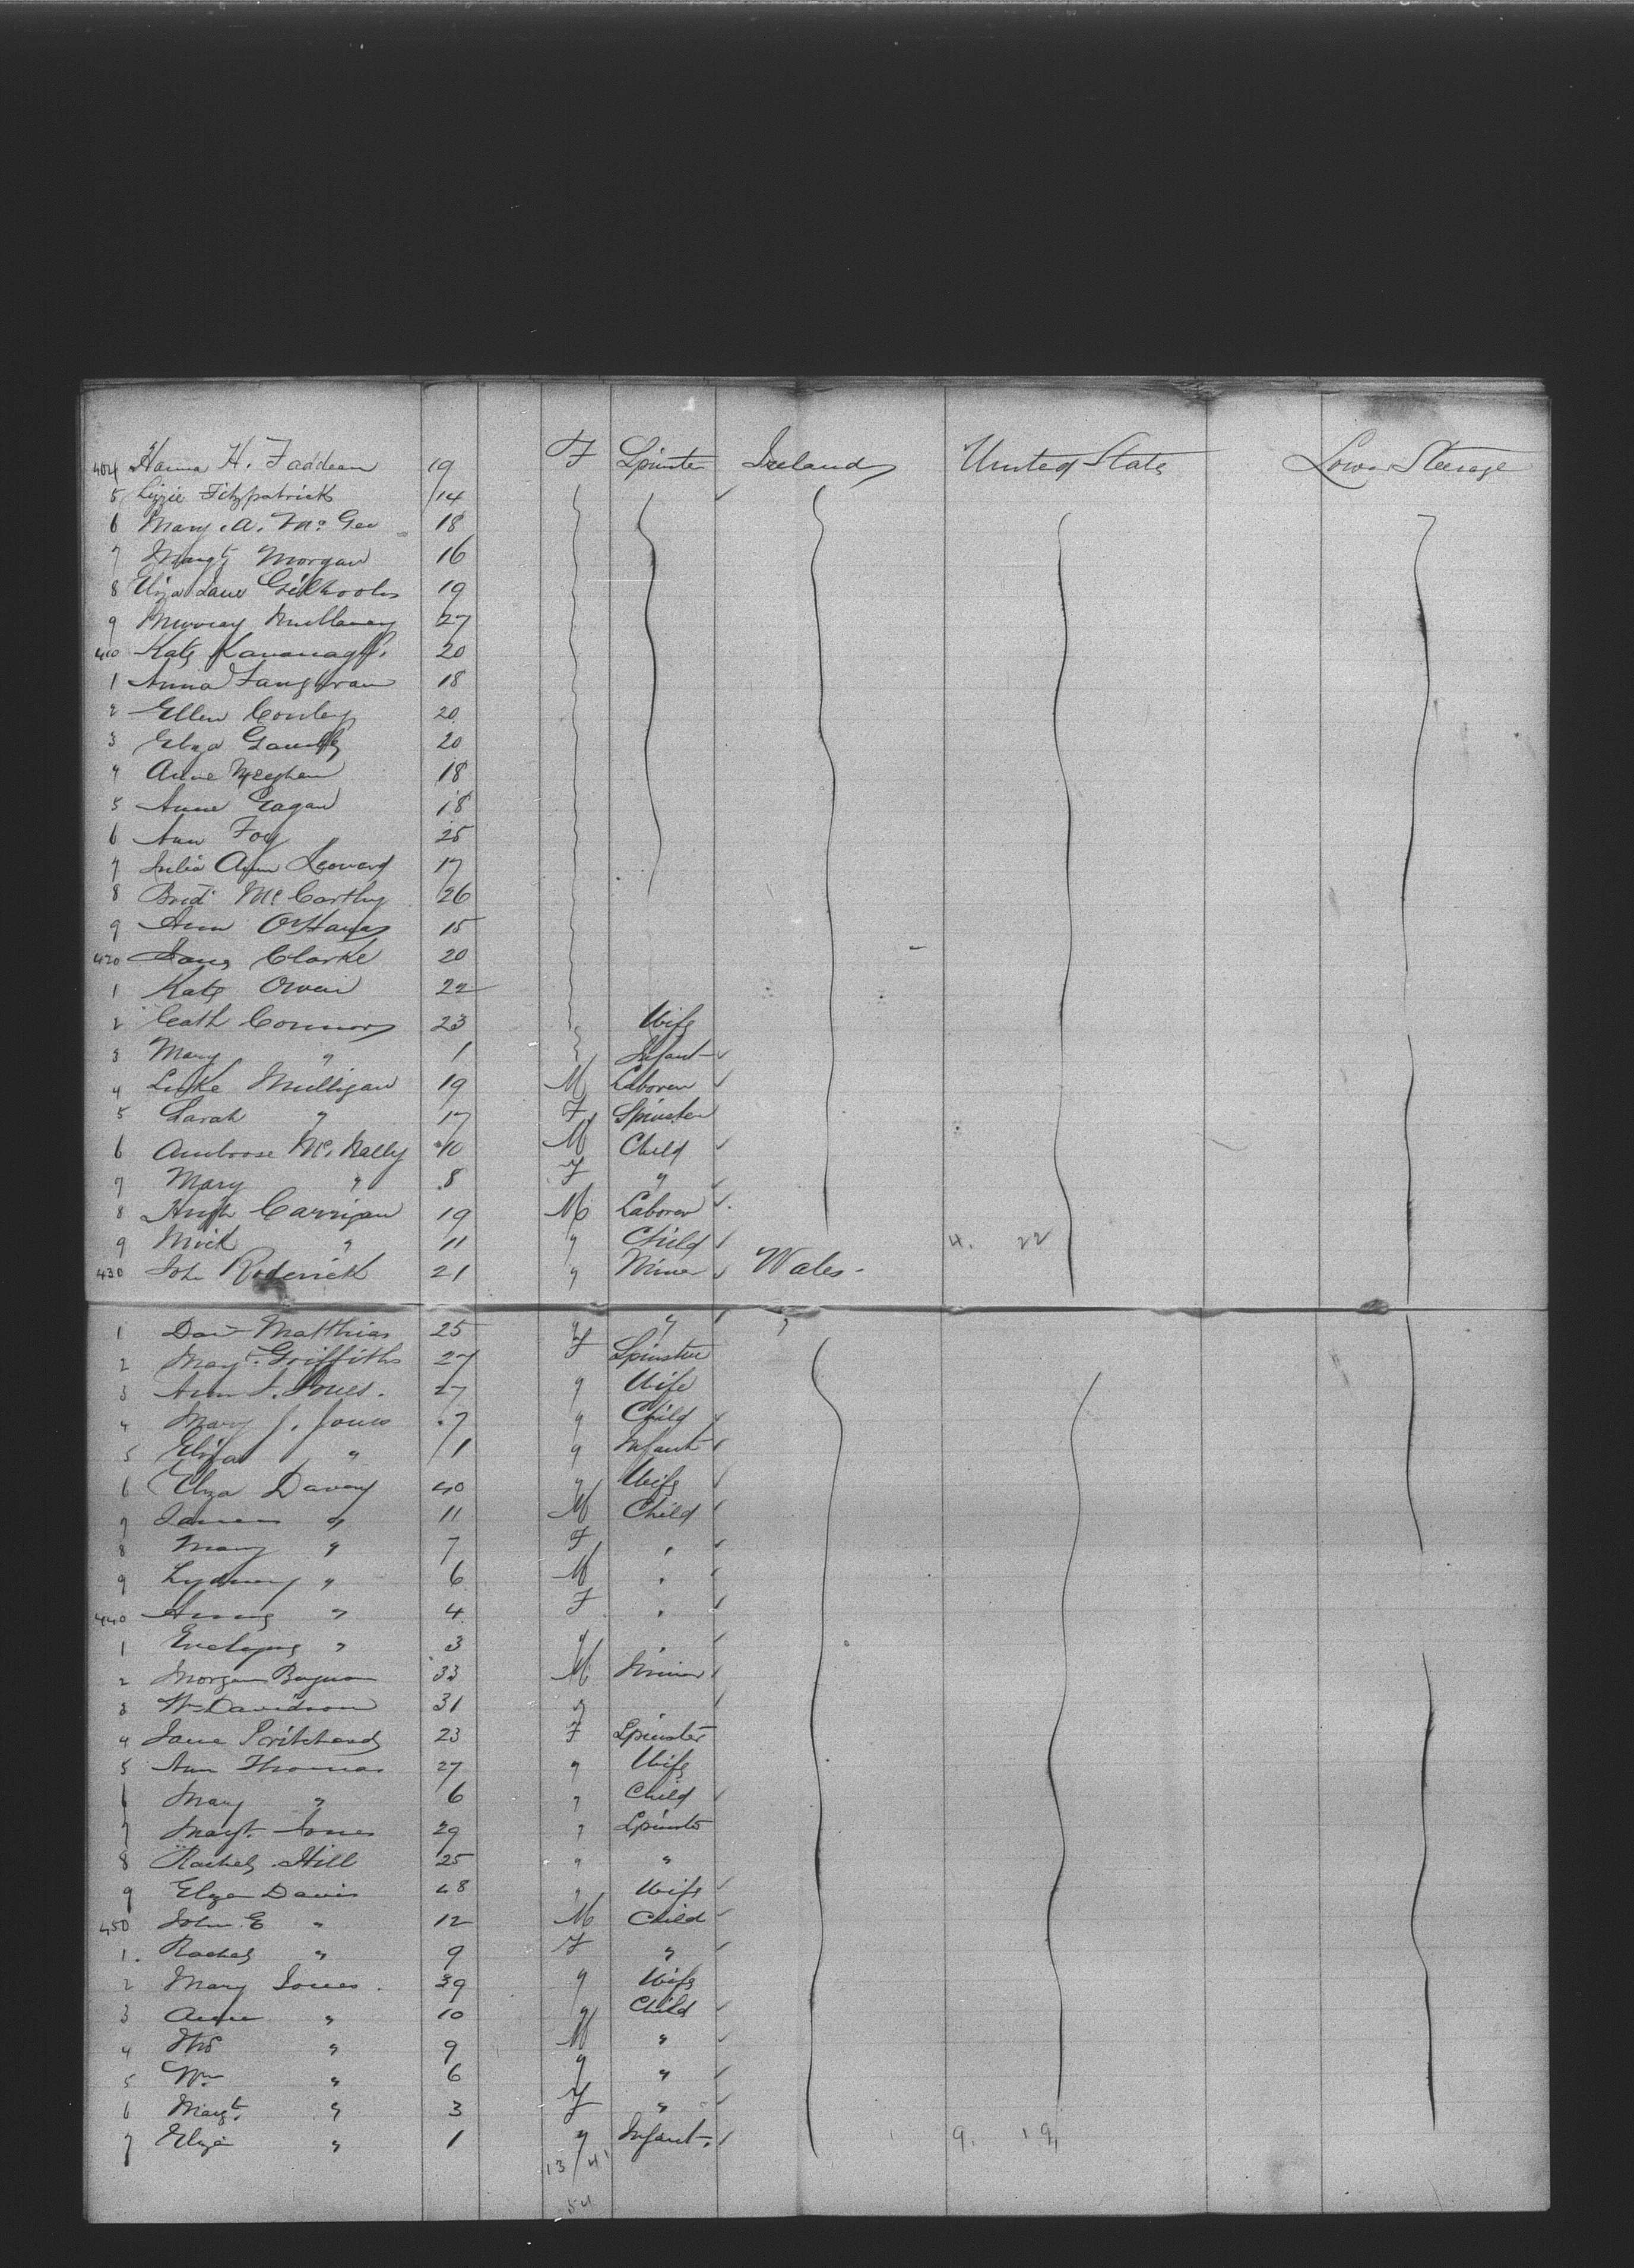 404 Hanna H. Faddean 19 F Spinster Ireland United States Lower Steerage
5 Lizzie Fitzpatrick 14
6 Mary A. Mc Gee 18
7 Margt Morgan 16
8 Eliza Jane Gilhooly 19
9 Mullaney 27
410 Kate Kavanagh 20
1 Annie 18
2 Ellen Conley 20
3 Eliza 20
4 Anne Meeghan 18
5 Anne Eagan 18
6 Ann Foy 25
7 Julia Ann Leonard 17
8 Bridt Mc Carthy 26
9 Ann O'Hara 15
420 Jane Clarke 20
1 Kate Owen 22
2 Cath Connors 23 Wife
3 Mary " 1 Infant
4 Luke Mulligan 19 M Laborer
5 Sarah " 17 F Spinster
6 Ambrose Mc Nally 10 M Child
7 Mary " 8 F "
8 Hugh Carrigan 19 M Laborer
9 Mick " 11 " Child 4. 22
430 John Roderick 21 " Miner Wales
1 Davd Matthias 25 " " "
2 Margt Griffiths 27 F Spinster
3 Ann J. Jones. 27 " Wife
4 Mary J. Jones 7 " Child
5 Eliza " 1 " Infant
6 Eliza Davey 40 " Wife
7 James " 11 M Child
8 Mary " 7 F "
9 " 6 M "
440 " 4 F "
1 " 3 " "
2 Morgan 33 M Miner
3 Wm Davidson 31 " "
4 Jane Pritchard 23 F Spinster
5 Ann Thomas 27 " Wife
6 Mary " 6 " Child
7 Margt. Jones 29 " Spinster
8 Rachel Hill 25 " "
9 Eliza Davis 48 " Wife
450 John E " 12 M Child
1. Rachel " 9 F "
2 Mary Jones 39 " Wife
3 Anne " 10 " Child
4 Thos " 9 M "
5 Wm " 6 " "
6 Margt. " 3 F "
7 Eliza " 1 " Infant. 9. 19
13/41
54